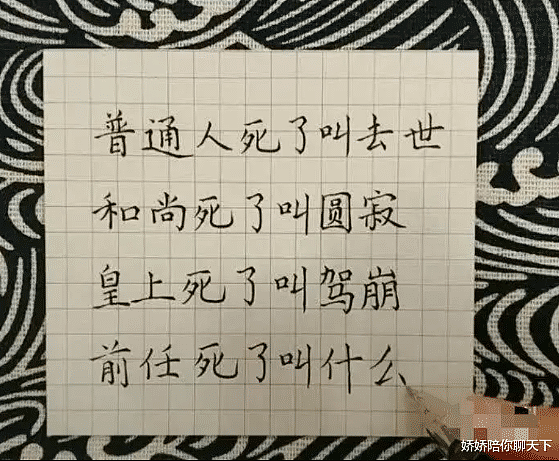 普通人死了叫去世
和尚死了叫圆寂
皇上死了叫驾崩
前任死了叫什么
娇娇陪你聊天下